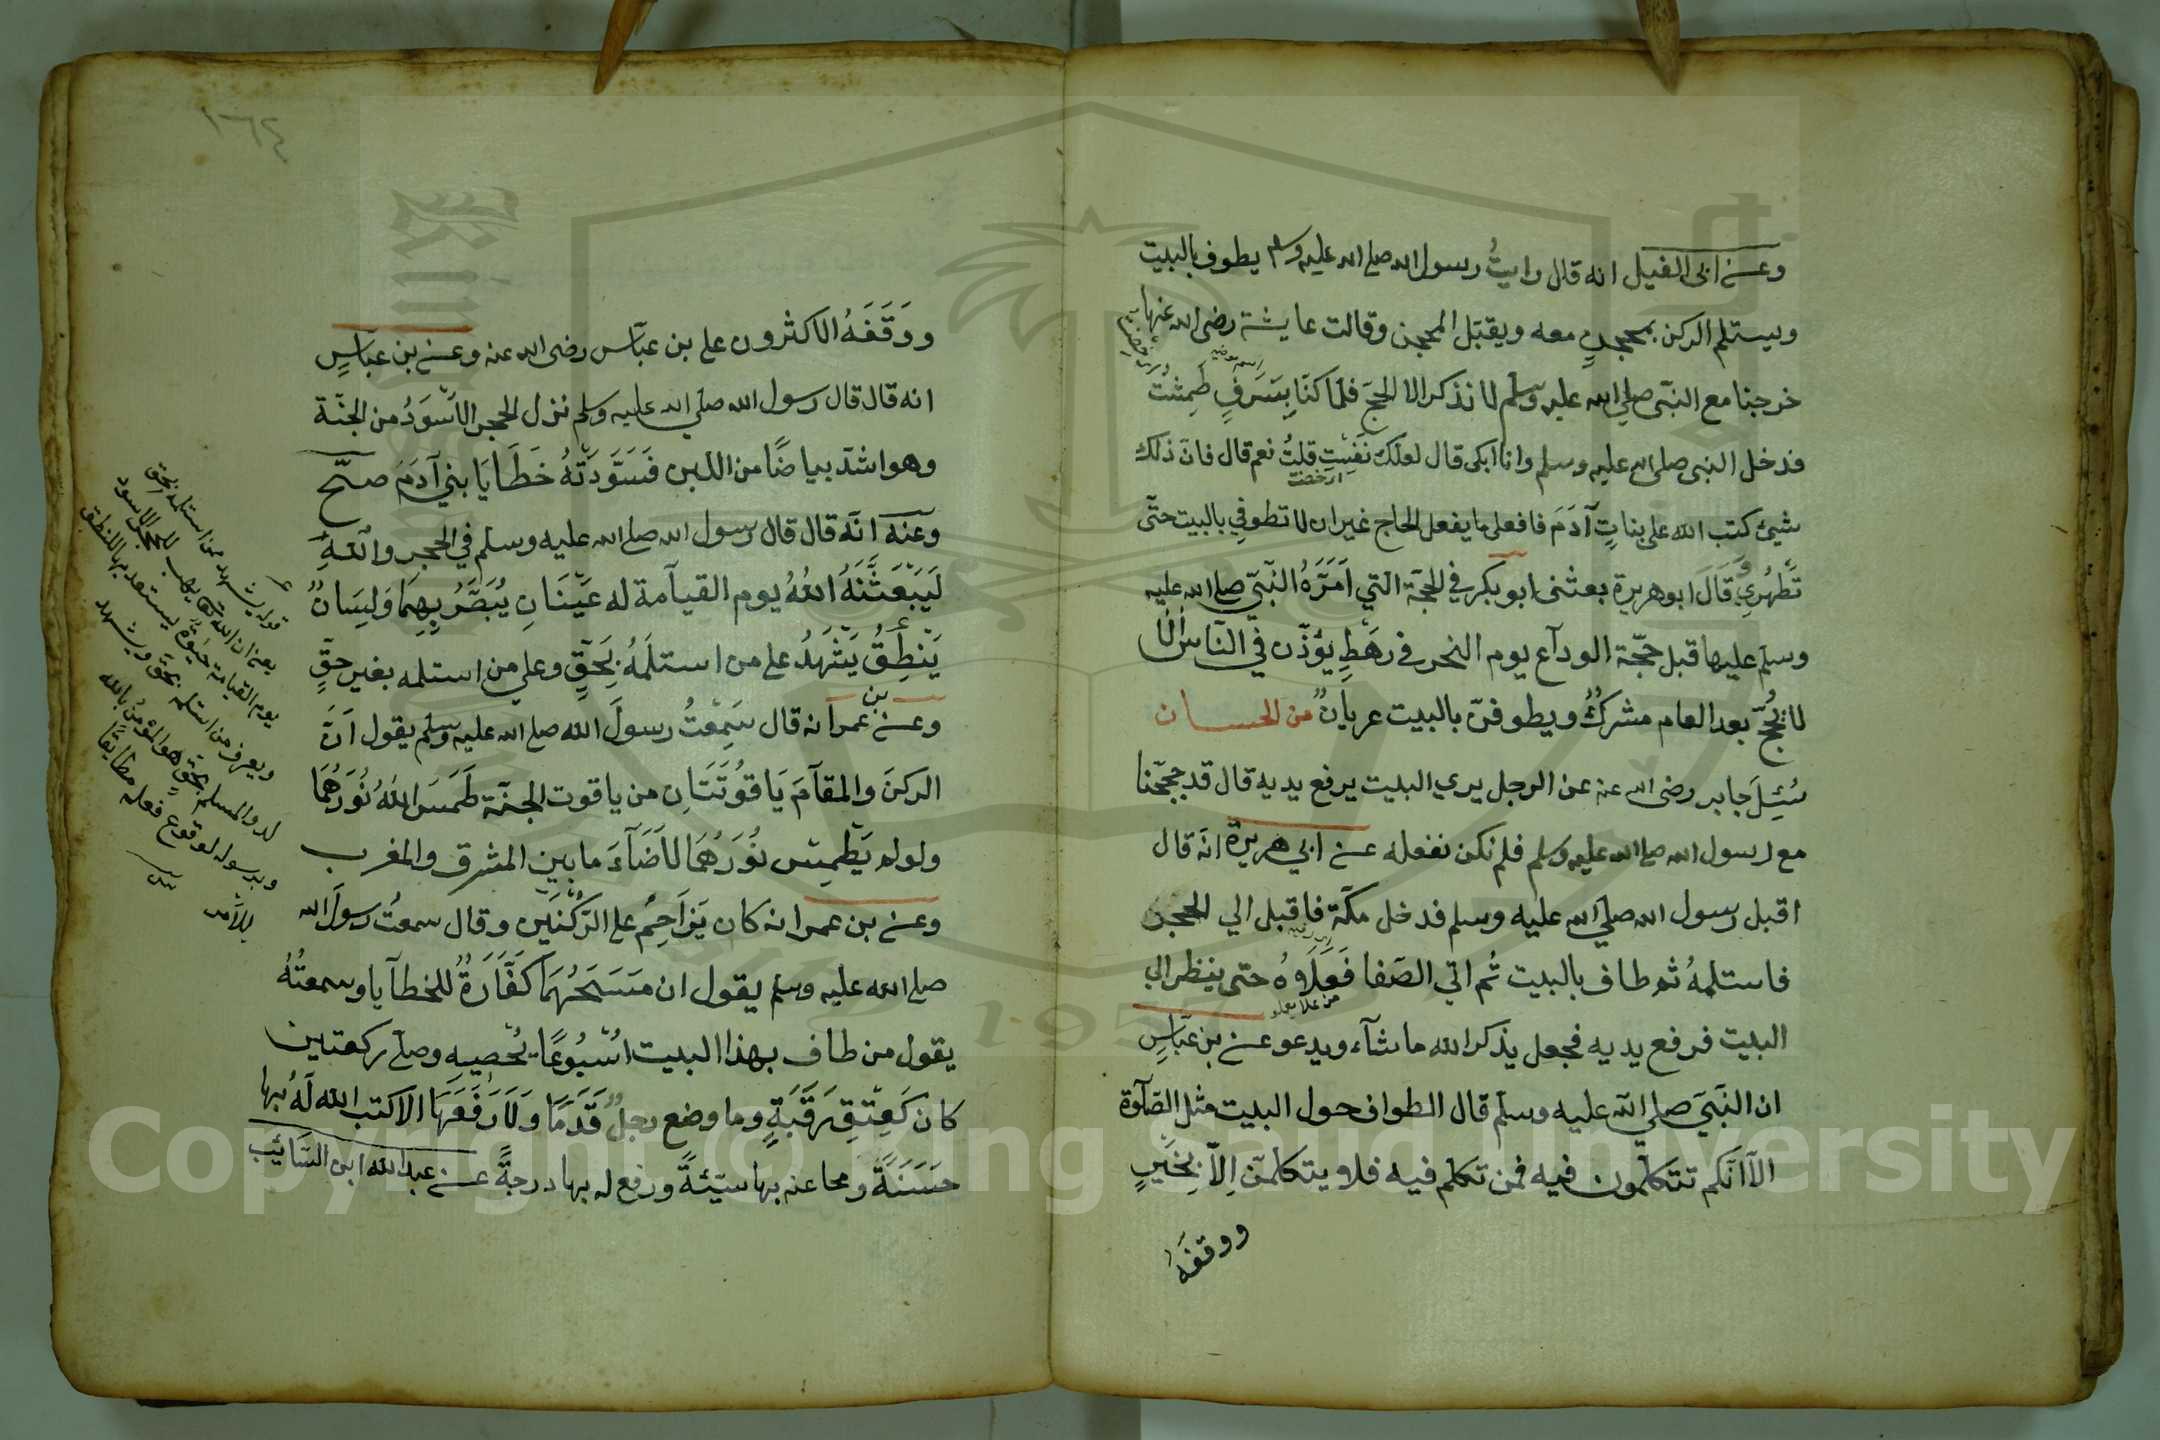 وعن ابي الفيل انه قال رايتُ رسول الله صلى الله عليه وسلم يطوف بالبيت
ويستلم الركن بمحجنٍ معه ويقبل المحجن وقالت عايشة رضى الله عنها
خرجنا مع النبى صلى الله عليه وسلم لا نذكر الا الحجّ فلما كنّا بِسَرَفٍ طَمِثتُ
فدخل النبى صلى الله عليه وسلم وانا ابكى قال لعلك نَفِسْتِ قلتُ نعم قال فانّ ذلك
شيئ كتب الله على بناتِ آدَمَ فافعلى ما يفعل الحاج غير ان لا تطوفِي بالبيت حتّى
تَطْهُرِي وقَالَ ابوهريرة بعثنى ابو بكر في الحجّة الّتي اَمَّرَهُ النّبيّ صلى الله عليه
وسلم عليها قبل حجّة الوداع يوم النحر في رهْطٍ يُؤذّن في النّاس اَلَا
لا يحُجّ بعد العام مشركٌ ويطوفنّ بالبيت عريانٌ من الحسان
سُئِلَ جابر رضى الله عنه عن الرجل يري البيت يرفع يديه قال قد حججنا
مع رسول الله صلى الله عليه وسلم فلم نكن نفعله عن ابي هريرة انّه قال
اقبل رسول الله صلى الله عليه وسلم فدخل مكّة فاقبل الي الحجر
فاستلمهُ ثم طاف بالبيت ثم اتي الصّفا فَعَلَاوهُ حتى ينظر الي
من علا يعلو
البيت فرفع يديه فجعل يذكر الله ما شآء ويدعو عن بن عبّاسٍ
ان النّبيّ صلى الله عليه وسلم قال الطواف حول البيت مثل الصّلوة
الّا انّكم تتكلّمون فيه فمن تكلم فيه فلا يتكلمنّ اِلّا بِخَيْرٍ
ووقفَهُ
١٦٤
ووَقَفَهُ الاكثرون على بن عبّاس رضى الله عنه وعن بن عبّاسٍ
انه قال قال رسول الله صلى الله عليه وسلم نزل الحجر الاَسْوَدُ من الجنّة
وهو اشدّ بياضًا من اللبن فَسَوَّدَتْهُ خَطَايَا بني آدَمَ صحّ
وعنه انّه قال قال رسول الله صلى الله عليه وسلم في الحجر واللهِ
لَيَبْعَثَنَّهُ اللهُ يوم القيآمة له عَيْنَانِ يُبْصِرُ بِهِمَا وَلِسَانٌ
يَنْطِقُ يَشْهَدُ على من استلَمَهُ بِحَقٍّ وعلى من استلمه بغير حقٍّ
وعن بن عمر انه قال سَمِعْتُ رسولَ الله صلى الله عليه وسلم يقول اَنَّ
الركنَ والمقآمَ يَاقوُتَتَانِ من ياقوت الجنّة طَمَسَ اللهُ نُوُرَهُمَا
ولو لم يَطْمِس نُوُرَهُمَا لاَضَآءَ ما بين المشرق والمغرب
وعن بن عمر انه كان يَزاَحِمُ على الرّكْنَيْنِ وقال سمعتُ رسولَ الله
صلى الله عليه وسلم يقول ان مَسَحَهُمَا كَفَّارَةٌ للخطآيا وسمعتُهُ
يقول من طاف بهذا البيت اُسْبُوُعًا يُحْصِيهِ وصلّى ركعتين
كان كَعِتْقِ رَقَبَةٍ وما وضع رجلٌ قَدَمًا وَلَا رَفَعَهَا الا كتب الله لَهُ بها
حَسَنَةً وَمحا عنه بها سيّئةً ورفع له بها درجةً عن عبد الله ابن السّايئب
يوم القيامة
ويعرف من استلمه بحق ويشهد
وبرسوله لوقوع فعله مطابقا
للامر
Copyright © King Saud University
1957